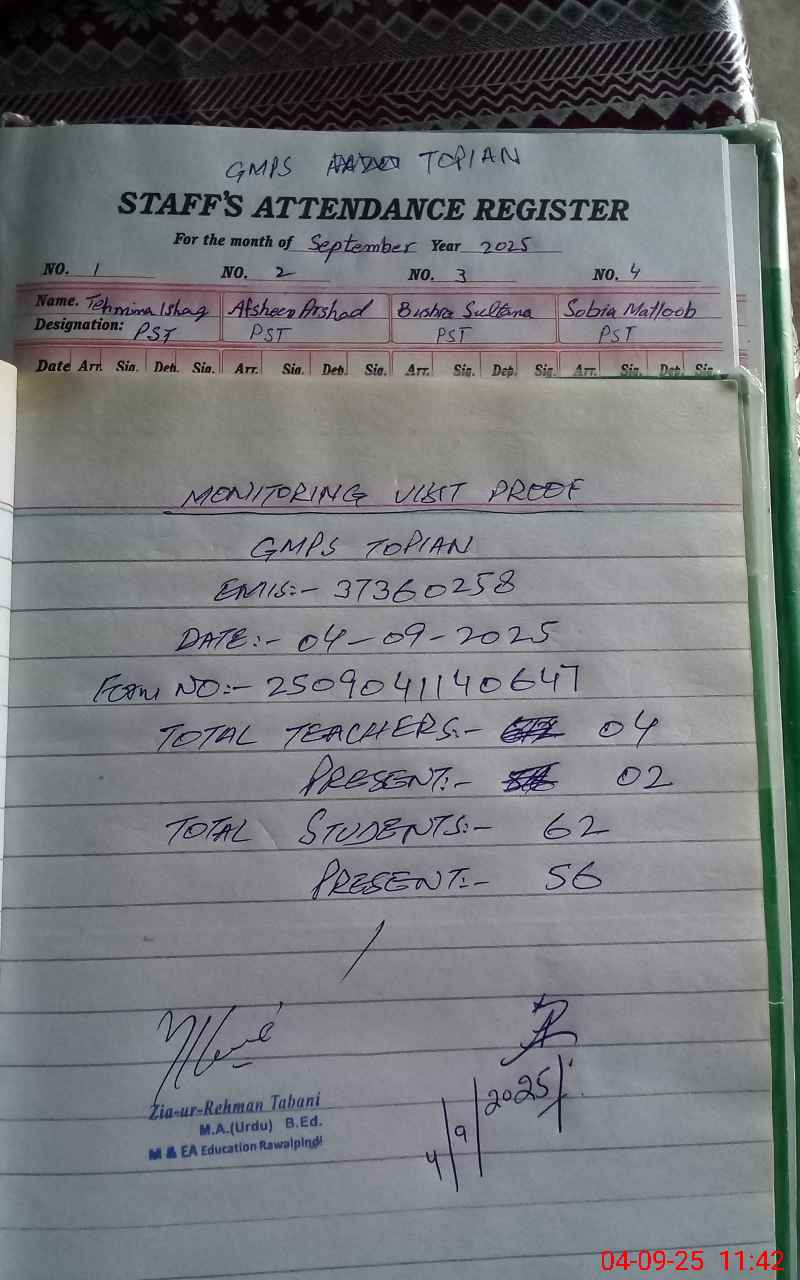 GMPS TOPIAN
STAFF'S ATTENDANCE REGISTER
For the month of September Year 2025
NO. 1 NO. 2 NO. 3 NO. 4
Name. Tehmina Ishaq Afsheen Arshad Bushra Sultana Sobia Matloob
Designation: PST PST PST PST
Date Arr. Sig. Dep. Sig. Arr. Sig. Dep. Sig. Arr. Sig. Dep. Sig. Arr. Sig. Dep. Sig.
MONITORING VISIT PROOF
GMPS TOPIAN
EMIS:- 37360258
DATE:- 04-09-2025
Form NO:- 2509041140647
TOTAL TEACHERS:- 04
PRESENT:- 02
TOTAL STUDENTS:- 62
PRESENT:- 56
Zia-ur-Rehman Tabani
M.A.(Urdu) B.Ed.
M & EA Education Rawalpindi
4/9/2025
04-09-25 11:42